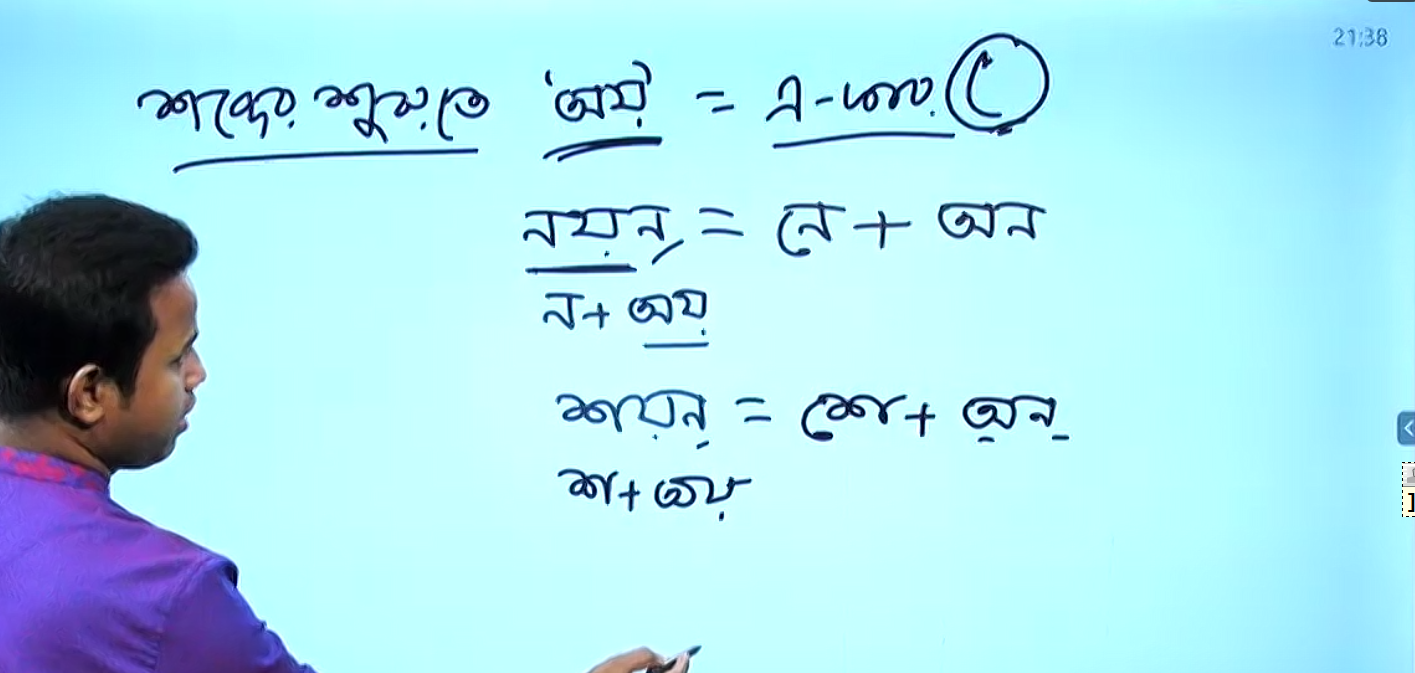 21:38
শব্দের শুরুতে 'অয়' = এ-কার (ে)
নয়ন = নে + অন
ন + অয়
শয়ন = শে + অন
শ + অয়